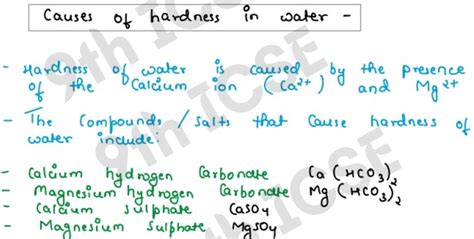 Causes of hardness in water -
- Hardness of water is caused by the presence
of the Calcium ion (Ca²⁺) and Mg²⁺
- The Compounds / Salts that cause hardness of
water include:
- Calcium hydrogen Carbonate Ca(HCO₃)₂
- Magnesium hydrogen Carbonate Mg(HCO₃)₂
- Calcium Sulphate CaSO₄
- Magnesium Sulphate MgSO₄
9th ICSE
9th ICSE